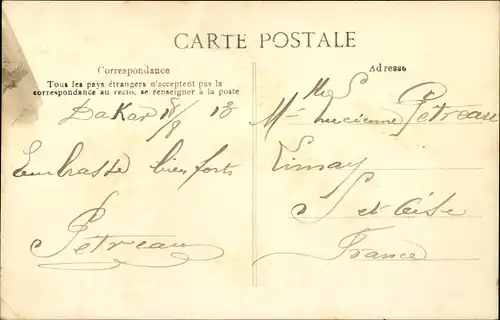 CARTE POSTALE
Correspondance
Tous les pays étrangers n'acceptent pas la
correspondance au recto, se renseigner à la poste
Dakar 18/8 13
Embrasse bien fort
Pétreau
Adresse
Mlle Lucienne Pétreau
Limay
S et Oise
France